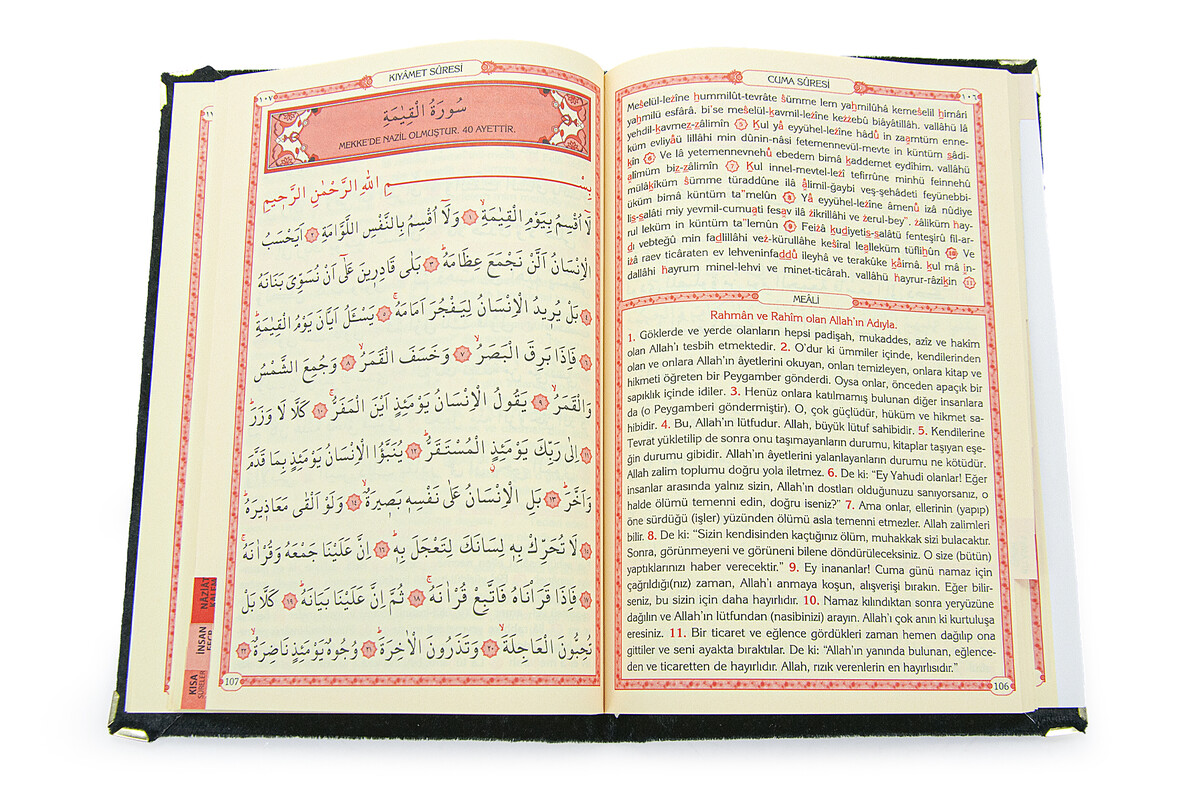 CUMA SÛRESİ
١٠٦
Meŝelül-leżîne ḥummilût-tevrâte ŝümme lem yaḥmilûhâ kemeŝelil ḥimâri
yaḥmilu esfârâ. bi'se meŝelül-kavmil-leżîne keżżebû biâyâtillâh. vallâhü lâ
yehdil-kavmeẓ-ẓâlimîn 5 Kul yâ eyyühel-leżîne hâdû in zaamtüm enne-
küm evliyâü lillâhi min dûnin-nâsi fetemennevül-mevte in küntüm ṣâdi-
kîn 6 Ve lâ yetemennevnehû ebedem bimâ kaddemet eydîhim. vallâhü
alîmüm biẓ-ẓâlimîn 7 Kul innel-mevtel-leżî tefirrûne minhü feinnehû
mülâkîküm ŝümme türaddûne ilâ âlimil-ğaybi veş-şehâdeti feyünebbi-
üküm bimâ küntüm ta"melûn 8 Yâ eyyühel-leżîne âmenû iżâ nûdiye
liṣ-ṣalâti miy yevmil-cumuati fesav ilâ żikrillâhi ve żerul-bey". żâliküm ḫay-
rul leküm in küntüm ta"lemûn 9 Feiżâ kudiyetiṣ-ṣalâtü fenteşirû fil-ar-
dı vebteğû min fadlillâhi veż-kürullâhe keŝîral lealleküm tüfliḥûn 10 Ve
iżâ raev ticâraten ev lehveninfaddû ileyhâ ve terakûke kâimâ. kul mâ in-
dallâhi ḫayrum minel-lehvi ve minet-ticârah. vallâhü ḫayrur-râzikîn 11
MEÂLİ
Rahmân ve Rahîm olan Allah'ın Adıyla.
1. Göklerde ve yerde olanların hepsi padişah, mukaddes, azîz ve hakîm
olan Allah'ı tesbih etmektedir. 2. O'dur ki ümmiler içinde, kendilerinden
olan ve onlara Allah'ın âyetlerini okuyan, onları temizleyen, onlara kitap ve
hikmeti öğreten bir Peygamber gönderdi. Oysa onlar, önceden apaçık bir
sapıklık içinde idiler. 3. Henüz onlara katılmamış bulunan diğer insanlara
da (o Peygamberi göndermiştir). O, çok güçlüdür, hüküm ve hikmet sa-
hibidir. 4. Bu, Allah'ın lütfudur. Allah, büyük lütuf sahibidir. 5. Kendilerine
Tevrat yükletilip de sonra onu taşımayanların durumu, kitaplar taşıyan eşe-
ğin durumu gibidir. Allah'ın âyetlerini yalanlayanların durumu ne kötüdür.
Allah zalim toplumu doğru yola iletmez. 6. De ki: "Ey Yahudi olanlar! Eğer
insanlar arasında yalnız sizin, Allah'ın dostları olduğunuzu sanıyorsanız, o
halde ölümü temenni edin, doğru iseniz?" 7. Ama onlar, ellerinin (yapıp)
öne sürdüğü (işler) yüzünden ölümü asla temenni etmezler. Allah zalimleri
bilir. 8. De ki: "Sizin kendisinden kaçtığınız ölüm, muhakkak sizi bulacaktır.
Sonra, görünmeyeni ve görüneni bilene döndürüleceksiniz. O size (bütün)
yaptıklarınızı haber verecektir." 9. Ey inananlar! Cuma günü namaz için
çağrıldığı(nız) zaman, Allah'ı anmaya koşun, alışverişi bırakın. Eğer bilir-
seniz, bu sizin için daha hayırlıdır. 10. Namaz kılındıktan sonra yeryüzüne
dağılın ve Allah'ın lütfundan (nasibinizi) arayın. Allah'ı çok anın ki kurtuluşa
eresiniz. 11. Bir ticaret ve eğlence gördükleri zaman hemen dağılıp ona
gittiler ve seni ayakta bıraktılar. De ki: "Allah'ın yanında bulunan, eğlence-
den ve ticaretten de hayırlıdır. Allah, rızık verenlerin en hayırlısıdır."
106
KIYÂMET SÛRESİ
١٠٧
سُورَةُ الْقِيٰمَةِ
MEKKE'DE NAZİL OLMUŞTUR. 40 AYETTİR.
بِسْمِ اللّٰهِ الرَّحْمٰنِ الرَّحٖيمِ
لَٓا اُقْسِمُ بِيَوْمِ الْقِيٰمَةِۙ ١ وَلَٓا اُقْسِمُ بِالنَّفْسِ اللَّوَّامَةِ ٢ اَيَحْسَبُ
الْاِنْسَانُ اَلَّنْ نَجْمَعَ عِظَامَهُۜ ٣ بَلٰى قَادِرٖينَ عَلٰٓى اَنْ نُسَوِّيَ بَنَانَهُ
٤ بَلْ يُرٖيدُ الْاِنْسَانُ لِيَفْجُرَ اَمَامَهُۚ ٥ يَسْـَٔلُ اَيَّانَ يَوْمُ الْقِيٰمَةِۜ
٦ فَاِذَا بَرِقَ الْبَصَرُۙ ٧ وَخَسَفَ الْقَمَرُۙ ٨ وَجُمِعَ الشَّمْسُ
وَالْقَمَرُۙ ٩ يَقُولُ الْاِنْسَانُ يَوْمَئِذٍ اَيْنَ الْمَفَرُّۚ ١٠ كَلَّا لَا وَزَرَۜ
١١ اِلٰى رَبِّكَ يَوْمَئِذٍ الْمُسْتَقَرُّۜ ١٢ يُنَبَّؤُا الْاِنْسَانُ يَوْمَئِذٍ بِمَا قَدَّمَ
وَاَخَّرَۜ ١٣ بَلِ الْاِنْسَانُ عَلٰى نَفْسِهٖ بَصٖيرَةٌۙ ١٤ وَلَوْ اَلْقٰى مَعَاذٖيرَهُۜ
١٥ لَا تُحَرِّكْ بِهٖ لِسَانَكَ لِتَعْجَلَ بِهٖۜ ١٦ اِنَّ عَلَيْنَا جَمْعَهُ وَقُرْاٰنَهُۚ
١٧ فَاِذَا قَرَأْنَاهُ فَاتَّبِعْ قُرْاٰنَهُۚ ١٨ ثُمَّ اِنَّ عَلَيْنَا بَيَانَهُۜ ١٩ كَلَّا بَلْ
تُحِبُّونَ الْعَاجِلَةَۙ ٢٠ وَتَذَرُونَ الْاٰخِرَةَۜ ٢١ وُجُوهٌ يَوْمَئِذٍ نَاضِرَةٌۙ ٢٢
107
NÂZİÂT
İNSAN
KISA
SÛRELER